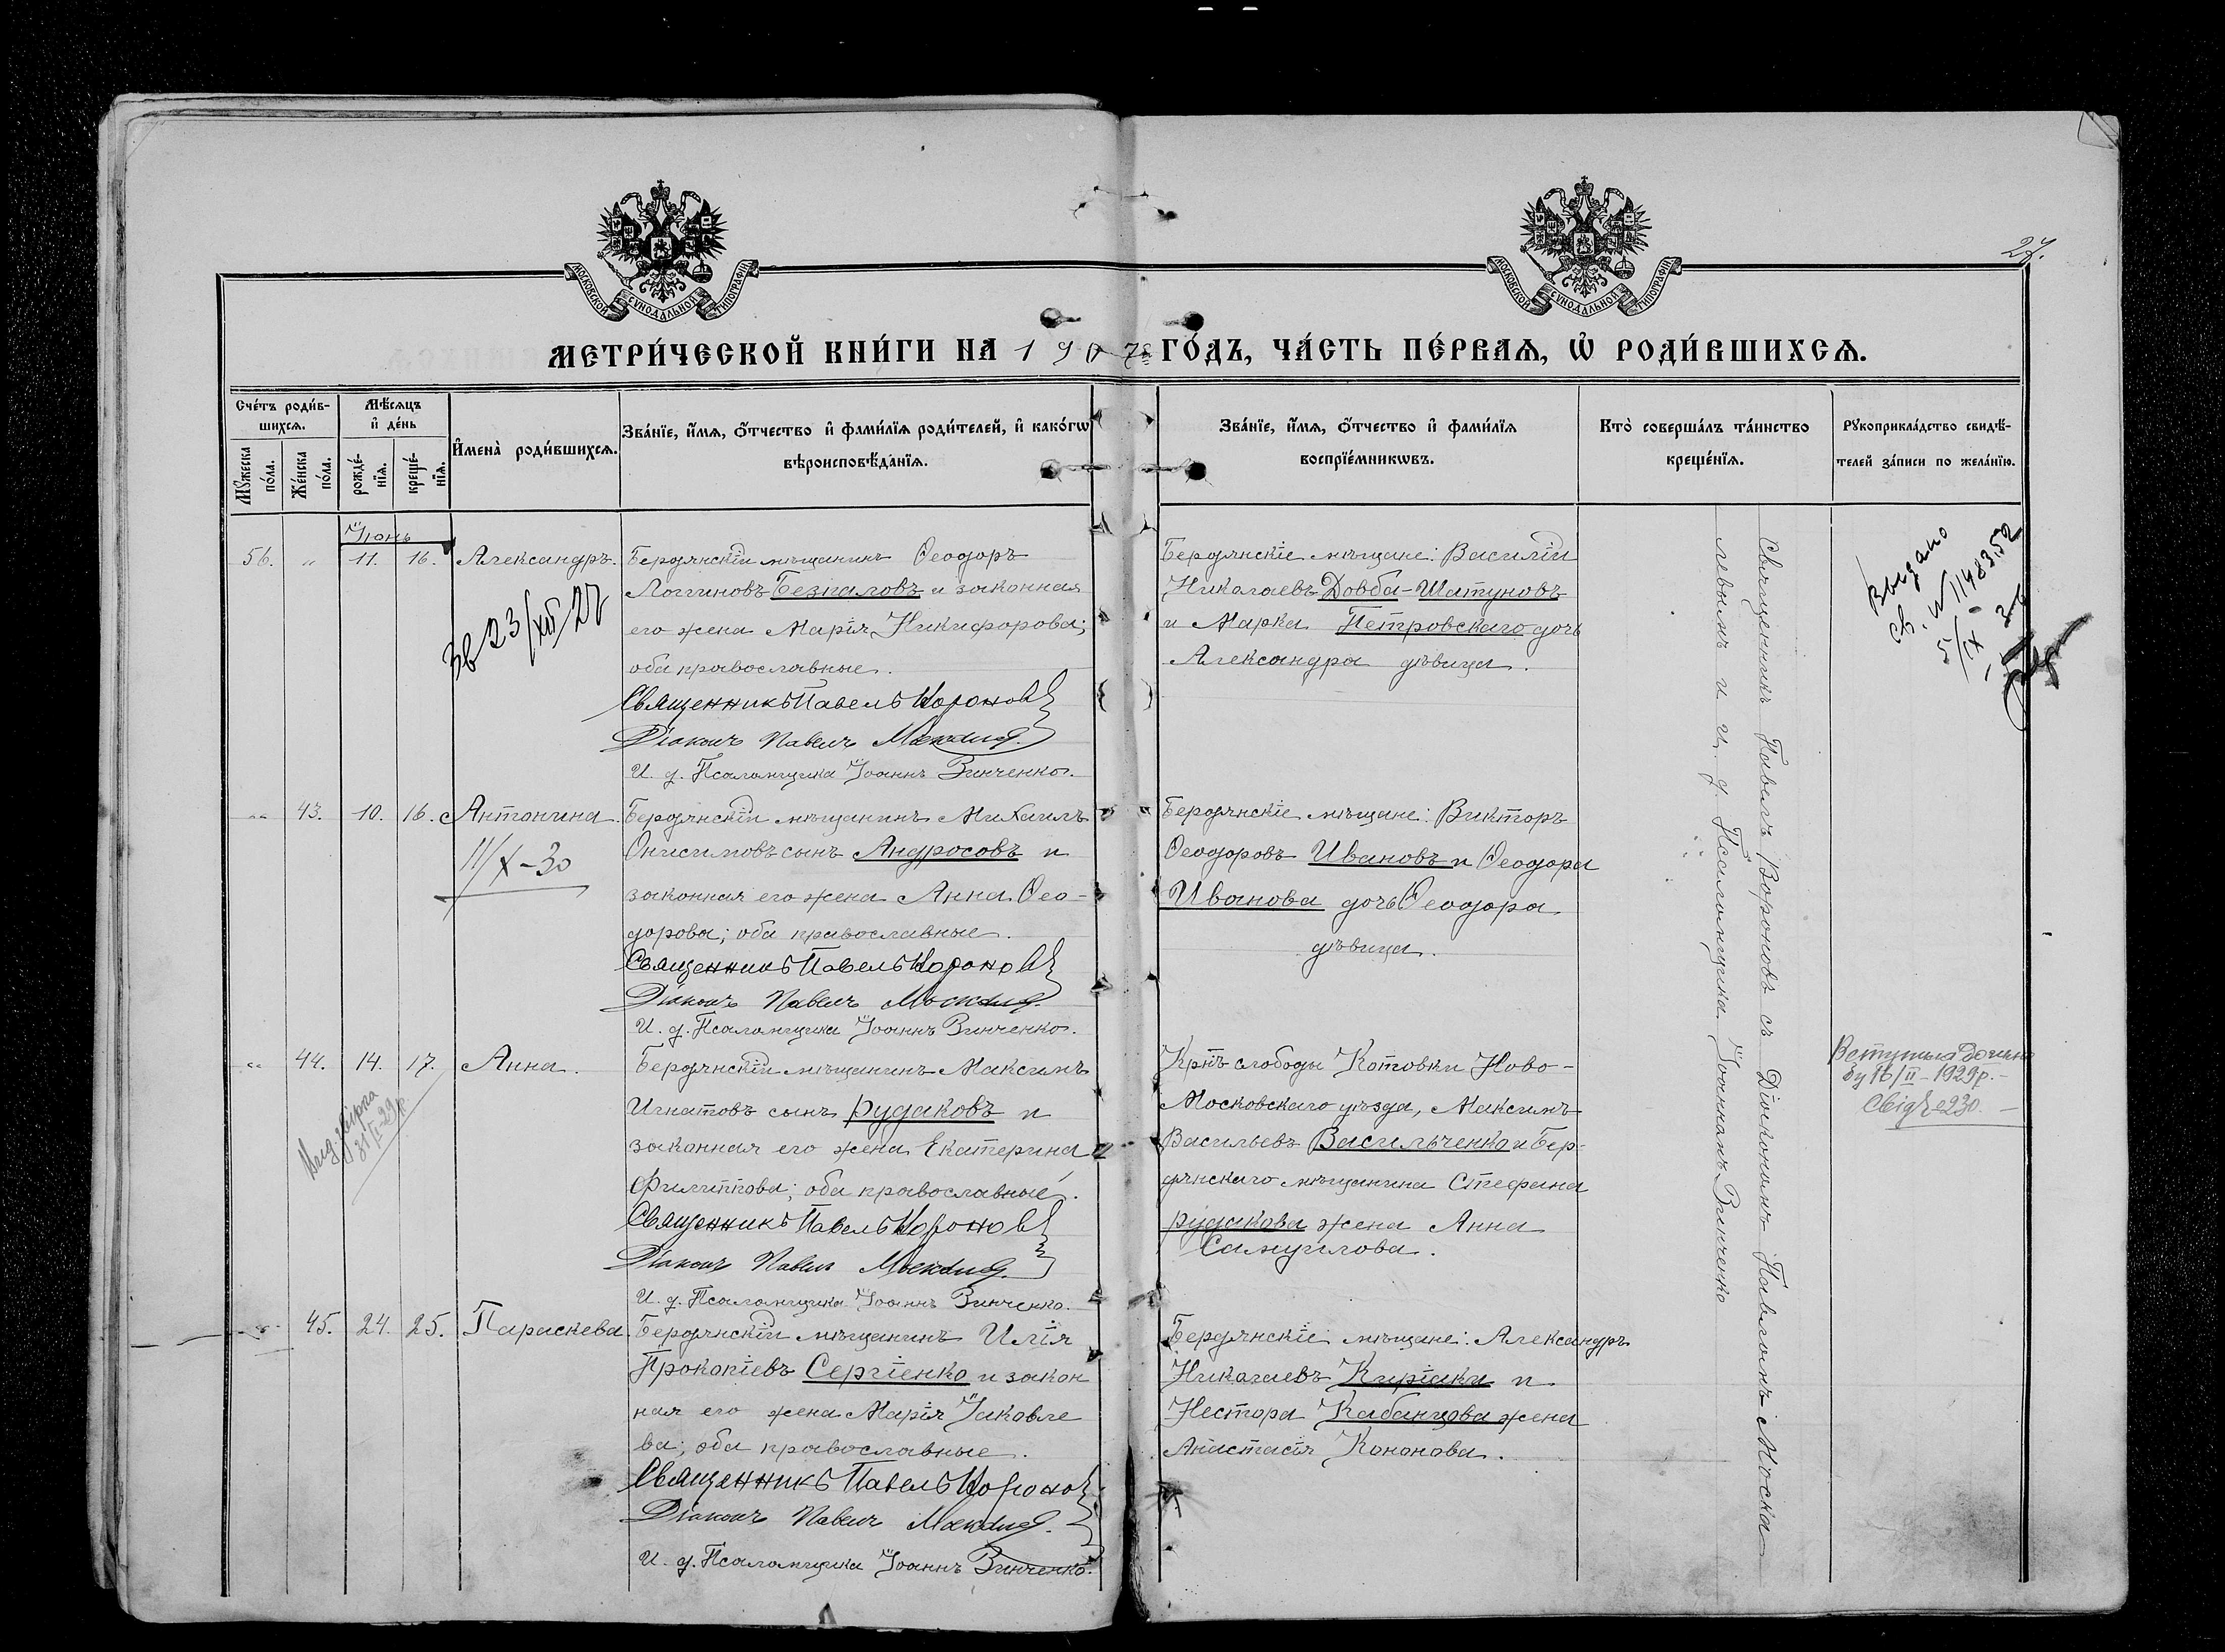 27.
МОСКОВСКОЙ СѴНОДАЛЬНОЙ ТИПОГРАФІИ
МОСКОВСКОЙ СѴНОДАЛЬНОЙ ТИПОГРАФІИ
МЕТРИ́ЧЕСКОЙ КНИ́ГИ НА 1907 ГО́ДЪ, ЧА́СТЬ ПЕ́РВАѦ, Ѡ҆ РОДИ́ВШИХСѦ.
Сче́тъ роди́в-
шихсѧ.
Мꙋ́жеска по́ла.
Же́нска по́ла.
Мѣ́сѧцъ
и҆ де́нь
рожде́-
нїѧ.
креще́-
нїѧ.
И҆мена̀ роди́вшихсѧ.
Зва́нїе, и҆́мѧ, ѻ҆́тчество и҆ фами́лїѧ роди́телей, и҆ како́гѡ
вѣроисповѣ́данїѧ.
Зва́нїе, и҆́мѧ, ѻ҆́тчество и҆ фами́лїѧ
воспрїе́мникѡвъ.
Кто̀ соверша́лъ та́инство
креще́нїѧ.
Рꙋкоприкла́дство свидѣ́-
телей за́писи по жела́нїю.
Іюнь
56. „ 11. 16. Александръ.
Бердянскій мѣщанинъ Ѳеодоръ
Логгиновъ Безпаловъ и законная
его жена Марія Никифорова;
оба православные.
Священникъ Павелъ Вороновъ
Діаконъ Павелъ Москалъ
И. д. Псаломщика Іоаннъ Винченко.
23/XII 27
Бердянскіе мѣщане: Василій
Николаевъ Довба-Шатуновъ
и Марка Петровскаго дочь
Александра дѣвица.
Выдано
св. N 1148352
5/IX
„ 43. 10. 16. Антонина.
11/X-30
Бердянскій мѣщанинъ Михаилъ
Онисимовъ сынъ Андросовъ и
законная его жена Анна Ѳео-
дорова; оба православные.
Священникъ Павелъ Вороновъ
Діаконъ Павелъ
И. д. Псаломщика Іоаннъ Винченко.
Бердянскіе мѣщане: Викторъ
Ѳеодоровъ Ивановъ и Ѳеодора
Иванова дочь Ѳеодора
дѣвица.
„ 44. 14. 17. Анна.
Бердянскій мѣщанинъ Максимъ
Игнатовъ сынъ Рудаковъ и
законная его жена Екатерина
Филиппова; оба православные.
Священникъ Павелъ Вороновъ
Діаконъ Павелъ
И. д. Псаломщика Іоаннъ Винченко.
Крнъ слободы Котовки Ново-
Московскаго уѣзда, Максимъ
Васильевъ Васильченко и Бер-
дянскаго мѣщанина Стефана
Рудакова жена Анна
Самуилова.
16/II-1929р.
Свід. 230.
„ 45. 24. 25. Параскева.
Бердянскій мѣщанинъ Илія
Прокопіевъ Сергіенко и закон
ная его жена Марія Іаковле
ва; оба православные.
Священникъ Павелъ Вороновъ
Діаконъ Павелъ
И. д. Псаломщика Іоаннъ Винченко.
Бердянскіе мѣщане: Александръ
Николаевъ Киріаки и
Нестора Кабанцова жена
Анастасія Кононова.
Священникъ Павелъ Вороновъ съ Діакономъ Павломъ Моска
левымъ и и. д. Псаломщика Іоанномъ Винченко